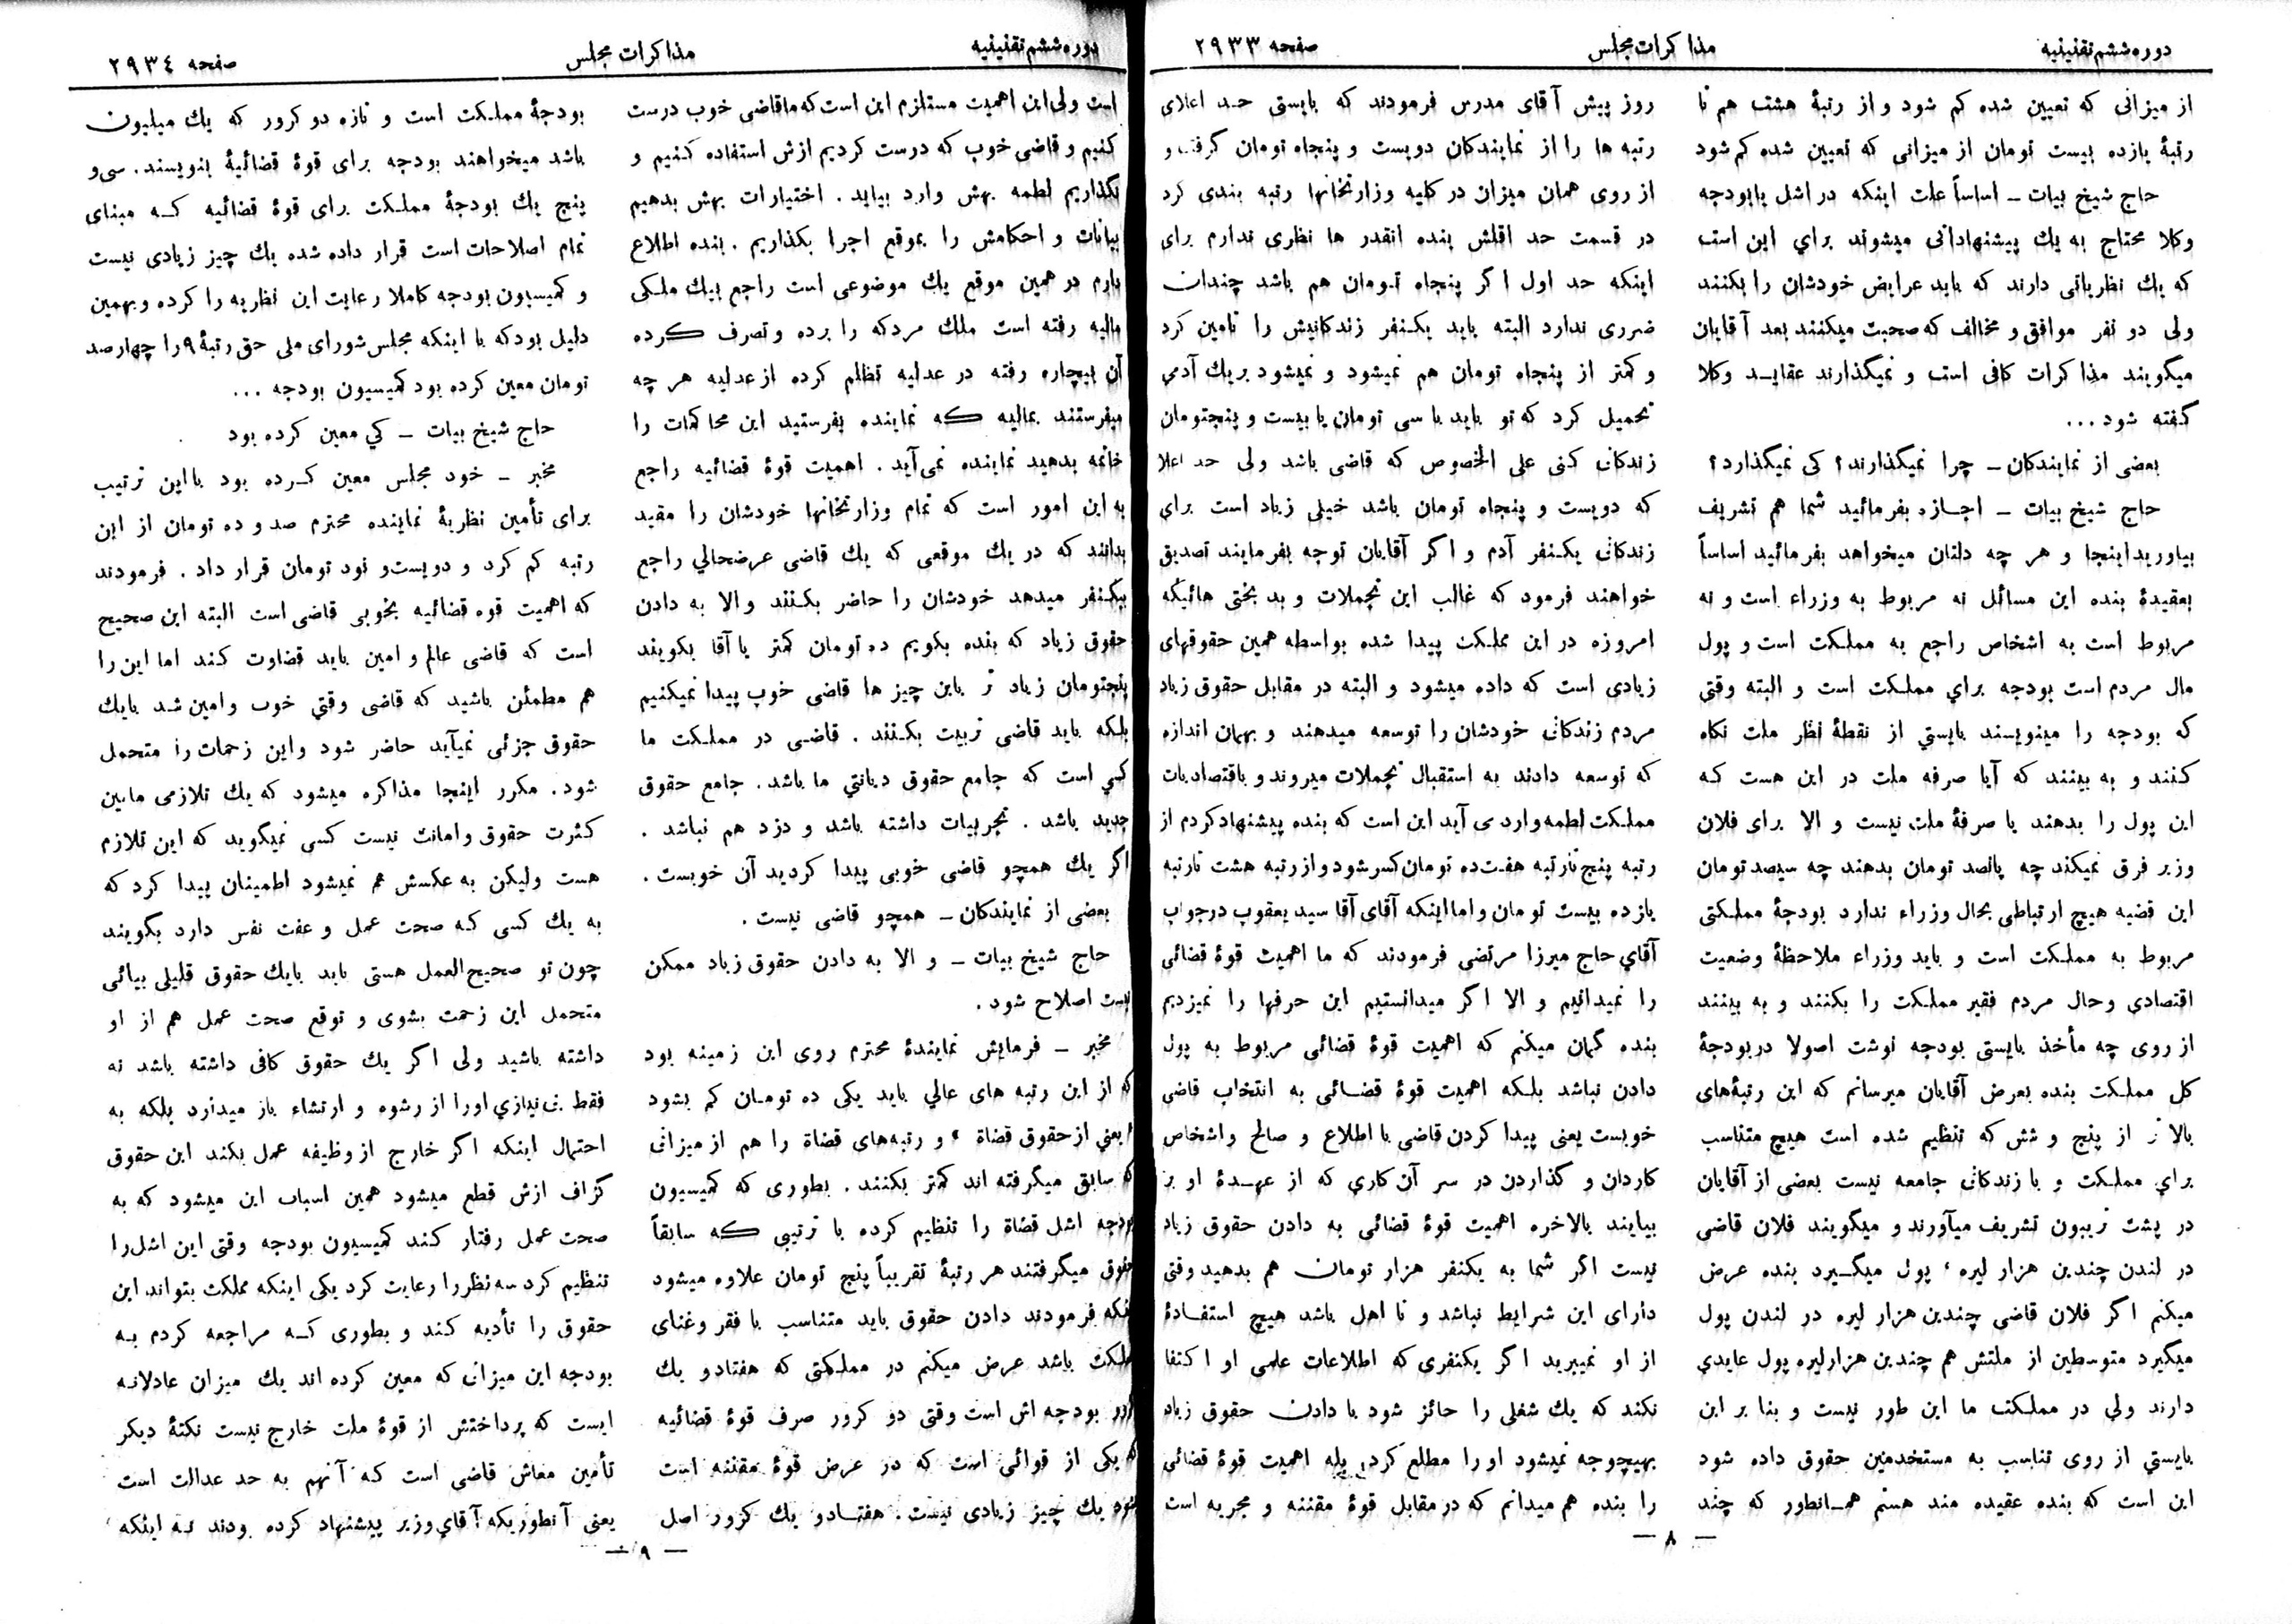 دوره ششم تقنینیه
مذاکرات مجلس
صفحه ۲۹۳۳
از میزانی که تعیین شده کم شود و از رتبهٔ هشت هم تا
رتبهٔ یازده بیست تومان از میزانی که تعیین شده کم شود
حاج شیخ بیات ـ اساساً علت اینکه در اشل یا بودجه
وکلا محتاج به یك پیشنهاداتی میشوند برای این است
که یك نظریاتی دارند که باید عرایض خودشان را بکنند
ولی دو نفر موافق و مخالف که صحبت میکنند بعد آقایان
میگویند مذاکرات کافی است و نمیگذارند عقاید وکلا
گفته شود ...
بعضی از نمایندگان ـ چرا نمیگذارند؟ کی نمیگذارد؟
حاج شیخ بیات ـ اجازه بفرمائید شما هم تشریف
بیاورید اینجا و هر چه دلتان میخواهد بفرمائید اساساً
بعقیدهٔ بنده این مسائل نه مربوط به وزراء است و نه
مربوط است به اشخاص راجع به مملکت است و پول
مال مردم است بودجه برای مملکت است و البته وقتی
که بودجه را مینویسند بایستی از نقطهٔ نظر ملت نگاه
کنند و به بینند که آیا صرفه ملت در این هست که
این پول را بدهند یا صرفهٔ ملت نیست و الا برای فلان
وزیر فرق نمیکند چه پانصد تومان بدهند چه سیصد تومان
این قضیه هیچ ارتباطی بحال وزراء ندارد بودجهٔ مملکتی
مربوط به مملکت است و باید وزراء ملاحظهٔ وضعیت
اقتصادی و حال مردم فقیر مملکت را بکنند و به بینند
از روی چه مأخذ بایستی بودجه نوشت اصولا در بودجهٔ
کل مملکت بنده بعرض آقایان میرسانم که این رتبه‌های
بالاتر از پنج و شش که تنظیم شده است هیچ متناسب
برای مملکت و با زندگانی جامعه نیست بعضی از آقایان
در پشت تریبون تشریف میآورند و میگویند فلان قاضی
در لندن چندین هزار لیره ، پول میگیرد بنده عرض
میکنم اگر فلان قاضی چندین هزار لیره در لندن پول
میگیرد متوسطین از ملتش هم چندین هزار لیره پول عایدی
دارند ولی در مملکت ما این طور نیست و بنا بر این
بایستی از روی تناسب به مستخدمین حقوق داده شود
این است که بنده عقیده مند هستم همانطور که چند
روز پیش آقای مدرس فرمودند که بایستی حد اعلای
رتبه ها را از نمایندگان دویست و پنجاه تومان گرفت و
از روی همان میزان در کلیه وزارتخانها رتبه بندی کرد
در قسمت حد اقلش بنده انقدر ها نظری ندارم برای
اینکه حد اول اگر پنجاه تومان هم باشد چندان
ضرری ندارد البته باید یکنفر زندگانیش را تامین کرد
و کمتر از پنجاه تومان هم نمیشود و نمیشود بر یك آدمی
تحمیل کرد که تو باید با سی تومان یا بیست و پنجتومان
زندگانی کنی علی الخصوص که قاضی باشد ولی حد اعلا
که دویست و پنجاه تومان باشد خیلی زیاد است برای
زندگانی یکنفر آدم و اگر آقایان توجه بفرمایند تصدیق
خواهند فرمود که غالب این تجملات و بد بختی هائیکه
امروزه در این مملکت پیدا شده بواسطه همین حقوقهای
زیادی است که داده میشود و البته در مقابل حقوق زیاد
مردم زندگانی خودشان را توسعه میدهند و بهمان اندازه
که توسعه دادند به استقبال تجملات میروند و باقتصادیات
مملکت لطمه وارد می آید این است که بنده پیشنهاد کردم از
رتبه پنج تا رتبه هفت ده تومان کسر شود و از رتبه هشت تا رتبه
یازده بیست تومان و اما اینکه آقای آقا سید یعقوب در جواب
آقای حاج میرزا مرتضی فرمودند که ما اهمیت قوهٔ قضائی
را نمیدانیم و الا اگر میدانستیم این حرفها را نمیزدیم
بنده گمان میکنم که اهمیت قوهٔ قضائی مربوط به پول
دادن نباشد بلکه اهمیت قوهٔ قضائی به انتخاب قاضی
خوبست یعنی پیدا کردن قاضی با اطلاع و صالح و اشخاص
کاردان و گذاردن در سر آن کاری که از عهدهٔ او بر
بیایند بالاخره اهمیت قوهٔ قضائی به دادن حقوق زیاد
نیست اگر شما به یکنفر هزار تومان هم بدهید وقتی
دارای این شرایط نباشد و نا اهل باشد هیچ استفادهٔ
از او نمیبرید اگر یکنفری که اطلاعات علمی او اکتفا
نکند که یك شغلی را حائز شود با دادن حقوق زیاد
بهیچوجه نمیشود او را مطلع کرد. بله اهمیت قوهٔ قضائی
را بنده هم میدانم که در مقابل قوهٔ مقننه و مجریه است
ـ ۸ ـ
دوره ششم تقنینیه
مذاکرات مجلس
صفحه ۲۹۳٤
است ولی این اهمیت مستلزم این است که ما قاضی خوب درست
کنیم و قاضی خوب که درست کردیم ازش استفاده کنیم و
نگذاریم لطمه بهش وارد بیاید . اختیارات بهش بدهیم
بیانات و احکامش را بموقع اجرا بگذاریم . بنده اطلاع
دارم در همین موقع یك موضوعی است راجع بیك ملکی
مالیه رفته است ملك مردکه را برده و تصرف کرده
آن بیچاره رفته در عدلیه تظلم کرده از عدلیه هر چه
میفرستند بمالیه که نماینده بفرستید این محاکمات را
خاتمه بدهید نماینده نمی آید . اهمیت قوهٔ قضائیه راجع
به این امور است که تمام وزارتخانها خودشان را مقید
بدانند که در یك موقعی که یك قاضی عرضحالی راجع
بیکنفر میدهد خودشان را حاضر بکنند والا به دادن
حقوق زیاد که بنده بگویم ده تومان کمتر یا آقا بگویند
پنجتومان زیاد تر باین چیز ها قاضی خوب پیدا نمیکنیم
بلکه باید قاضی تربیت بکنند . قاضی در مملکت ما
کسی است که جامع حقوق دیانتی ما باشد . جامع حقوق
جدید باشد . تجربیات داشته باشد و دزد هم نباشد .
اگر یك همچو قاضی خوبی پیدا کردید آن خوبست .
بعضی از نمایندگان ـ همچو قاضی نیست .
حاج شیخ بیات ـ و الا به دادن حقوق زیاد ممکن
نیست اصلاح شود .
مخبر ـ فرمایش نمایندهٔ محترم روی این زمینه بود
که از این رتبه های عالی باید یکی ده تومان کم بشود
یعنی از حقوق قضاة ، و رتبه‌های قضاة را هم از میزانی
که سابق میگرفته اند کمتر بکنند . بطوری که کمیسیون
بودجه اشل قضاة را تنظیم کرده با ترتیبی که سابقاً
حقوق میگرفتند هر رتبهٔ تقریباً پنج تومان علاوه میشود
اینکه فرمودند دادن حقوق باید متناسب با فقر و غنای
مملکت باشد عرض میکنم در مملکتی که هفتاد و یك
کرور بودجه اش است وقتی دو کرور صرف قوهٔ قضائیه
که یکی از قوائی است که در عرض قوهٔ مقننه است
شود یك چیز زیادی نیست . هفتاد و یك کرور اصل
بودجهٔ مملکت است و تازه دو کرور که یك میلیون
باشد میخواهند بودجه برای قوهٔ قضائیهٔ بنویسند . سی و
پنج یك بودجهٔ مملکت برای قوهٔ قضائیه که مبنای
تمام اصلاحات است قرار داده شده یك چیز زیادی نیست
و کمیسیون بودجه کاملا رعایت این نظریه را کرده و بهمین
دلیل بود که با اینکه مجلس شورای ملی حق رتبهٔ ۹ را چهار صد
تومان معین کرده بود کمیسیون بودجه ...
حاج شیخ بیات ـ کی معین کرده بود
مخبر ـ خود مجلس معین کرده بود با این ترتیب
برای تأمین نظریهٔ نماینده محترم صد و ده تومان از این
رتبه کم کرد و دویست و نود تومان قرار داد . فرمودند
که اهمیت قوه قضائیه بخوبی قاضی است البته این صحیح
است که قاضی عالم و امین باید قضاوت کند اما این را
هم مطمئن باشید که قاضی وقتی خوب و امین شد با یك
حقوق جزئی نمیآید حاضر شود و این زحمات را متحمل
شود . مکرر اینجا مذاکره میشود که یك تلازمی مابین
کثرت حقوق و امانت نیست کسی نمیگوید که این تلازم
هست ولیکن به عکسش هم نمیشود اطمینان پیدا کرد که
به یك کسی که صحت عمل و عفت نفس دارد بگویند
چون تو صحیح العمل هستی باید بایك حقوق قلیلی بیائی
متحمل این زحمت بشوی و توقع صحت عمل هم از او
داشته باشید ولی اگر یك حقوق کافی داشته باشد نه
فقط بی نیازی او را از رشوه و ارتشاء باز میدارد بلکه به
احتمال اینکه اگر خارج از وظیفه عمل بکند این حقوق
گزاف ازش قطع میشود همین اسباب این میشود که به
صحت عمل رفتار کند کمیسیون بودجه وقتی این اشل را
تنظیم کرد سه نظر را رعایت کرد یکی اینکه مملکت بتواند این
حقوق را تأدیه کند و بطوری که مراجعه کردم به
بودجه این میزانی که معین کرده اند یك میزان عادلانه
ایست که پرداختش از قوهٔ ملت خارج نیست نکتهٔ دیگر
تأمین معاش قاضی است که آنهم به حد عدالت است
یعنی آنطوریکه آقای وزیر پیشنهاد کرده بودند نه اینکه
ـ ۹ ـ